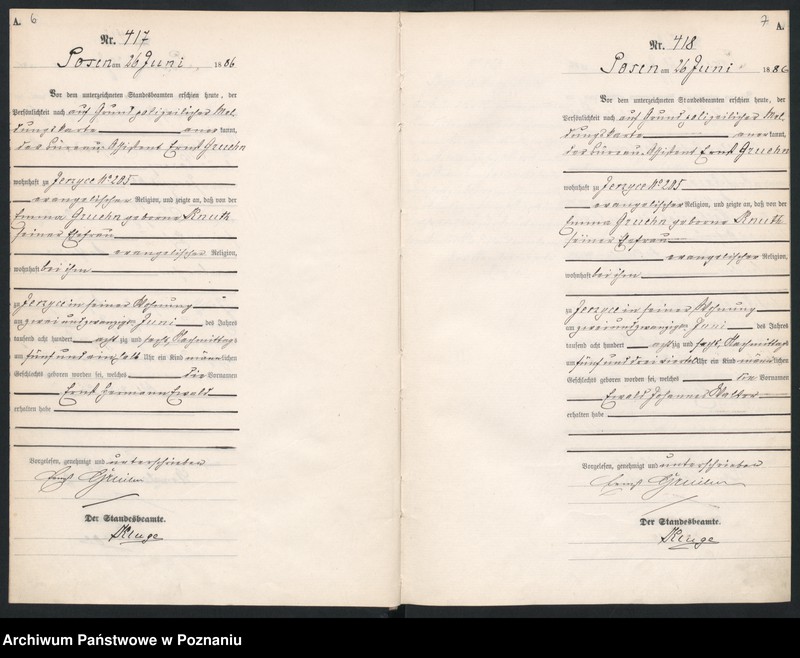 A. 6
Nr. 417
Posen am 26 Juni 1886
Vor dem unterzeichneten Standesbeamten erschien heute, der
Persönlichkeit nach auf Grund polizeilicher Mel
dungskarte anerkannt,
der Büreau-Assistent Ernst Gruehn
wohnhaft zu Jerzyce No 205
evangelischer Religion, und zeigte an, daß von der
Emma Gruehn geborne Knuth
seiner Ehefrau
evangelischer Religion,
wohnhaft bei ihm
zu Jerzyce in seiner Wohnung
am zwei und zwanzigsten Juni des Jahres
tausend acht hundert achtzig und sechs, Nachmittags
um fünf und ein halb Uhr ein Kind männlichen
Geschlechts geboren worden sei, welches die Vornamen
Ernst Hermann Ewald
erhalten habe
Vorgelesen, genehmigt und unterschrieben
Ernst Gruehn
Der Standesbeamte.
Kluge
7 A.
Nr. 418
Posen am 26 Juni 1886
Vor dem unterzeichneten Standesbeamten erschien heute, der
Persönlichkeit nach auf Grund polizeilicher Mel
dungskarte anerkannt,
der Büreau-Assistent Ernst Gruehn
wohnhaft zu Jerzyce No 205
evangelischer Religion, und zeigte an, daß von der
Emma Gruehn geborne Knuth
seiner Ehefrau
evangelischer Religion,
wohnhaft bei ihm
zu Jerzyce in seiner Wohnung
am zwei und zwanzigsten Juni des Jahres
tausend acht hundert achtzig und sechs, Nachmittags
um fünf und drei viertel Uhr ein Kind männlichen
Geschlechts geboren worden sei, welches die Vornamen
Ewald Johannes Walter
erhalten habe
Vorgelesen, genehmigt und unterschrieben
Ernst Gruehn
Der Standesbeamte.
Kluge
Archiwum Państwowe w Poznaniu